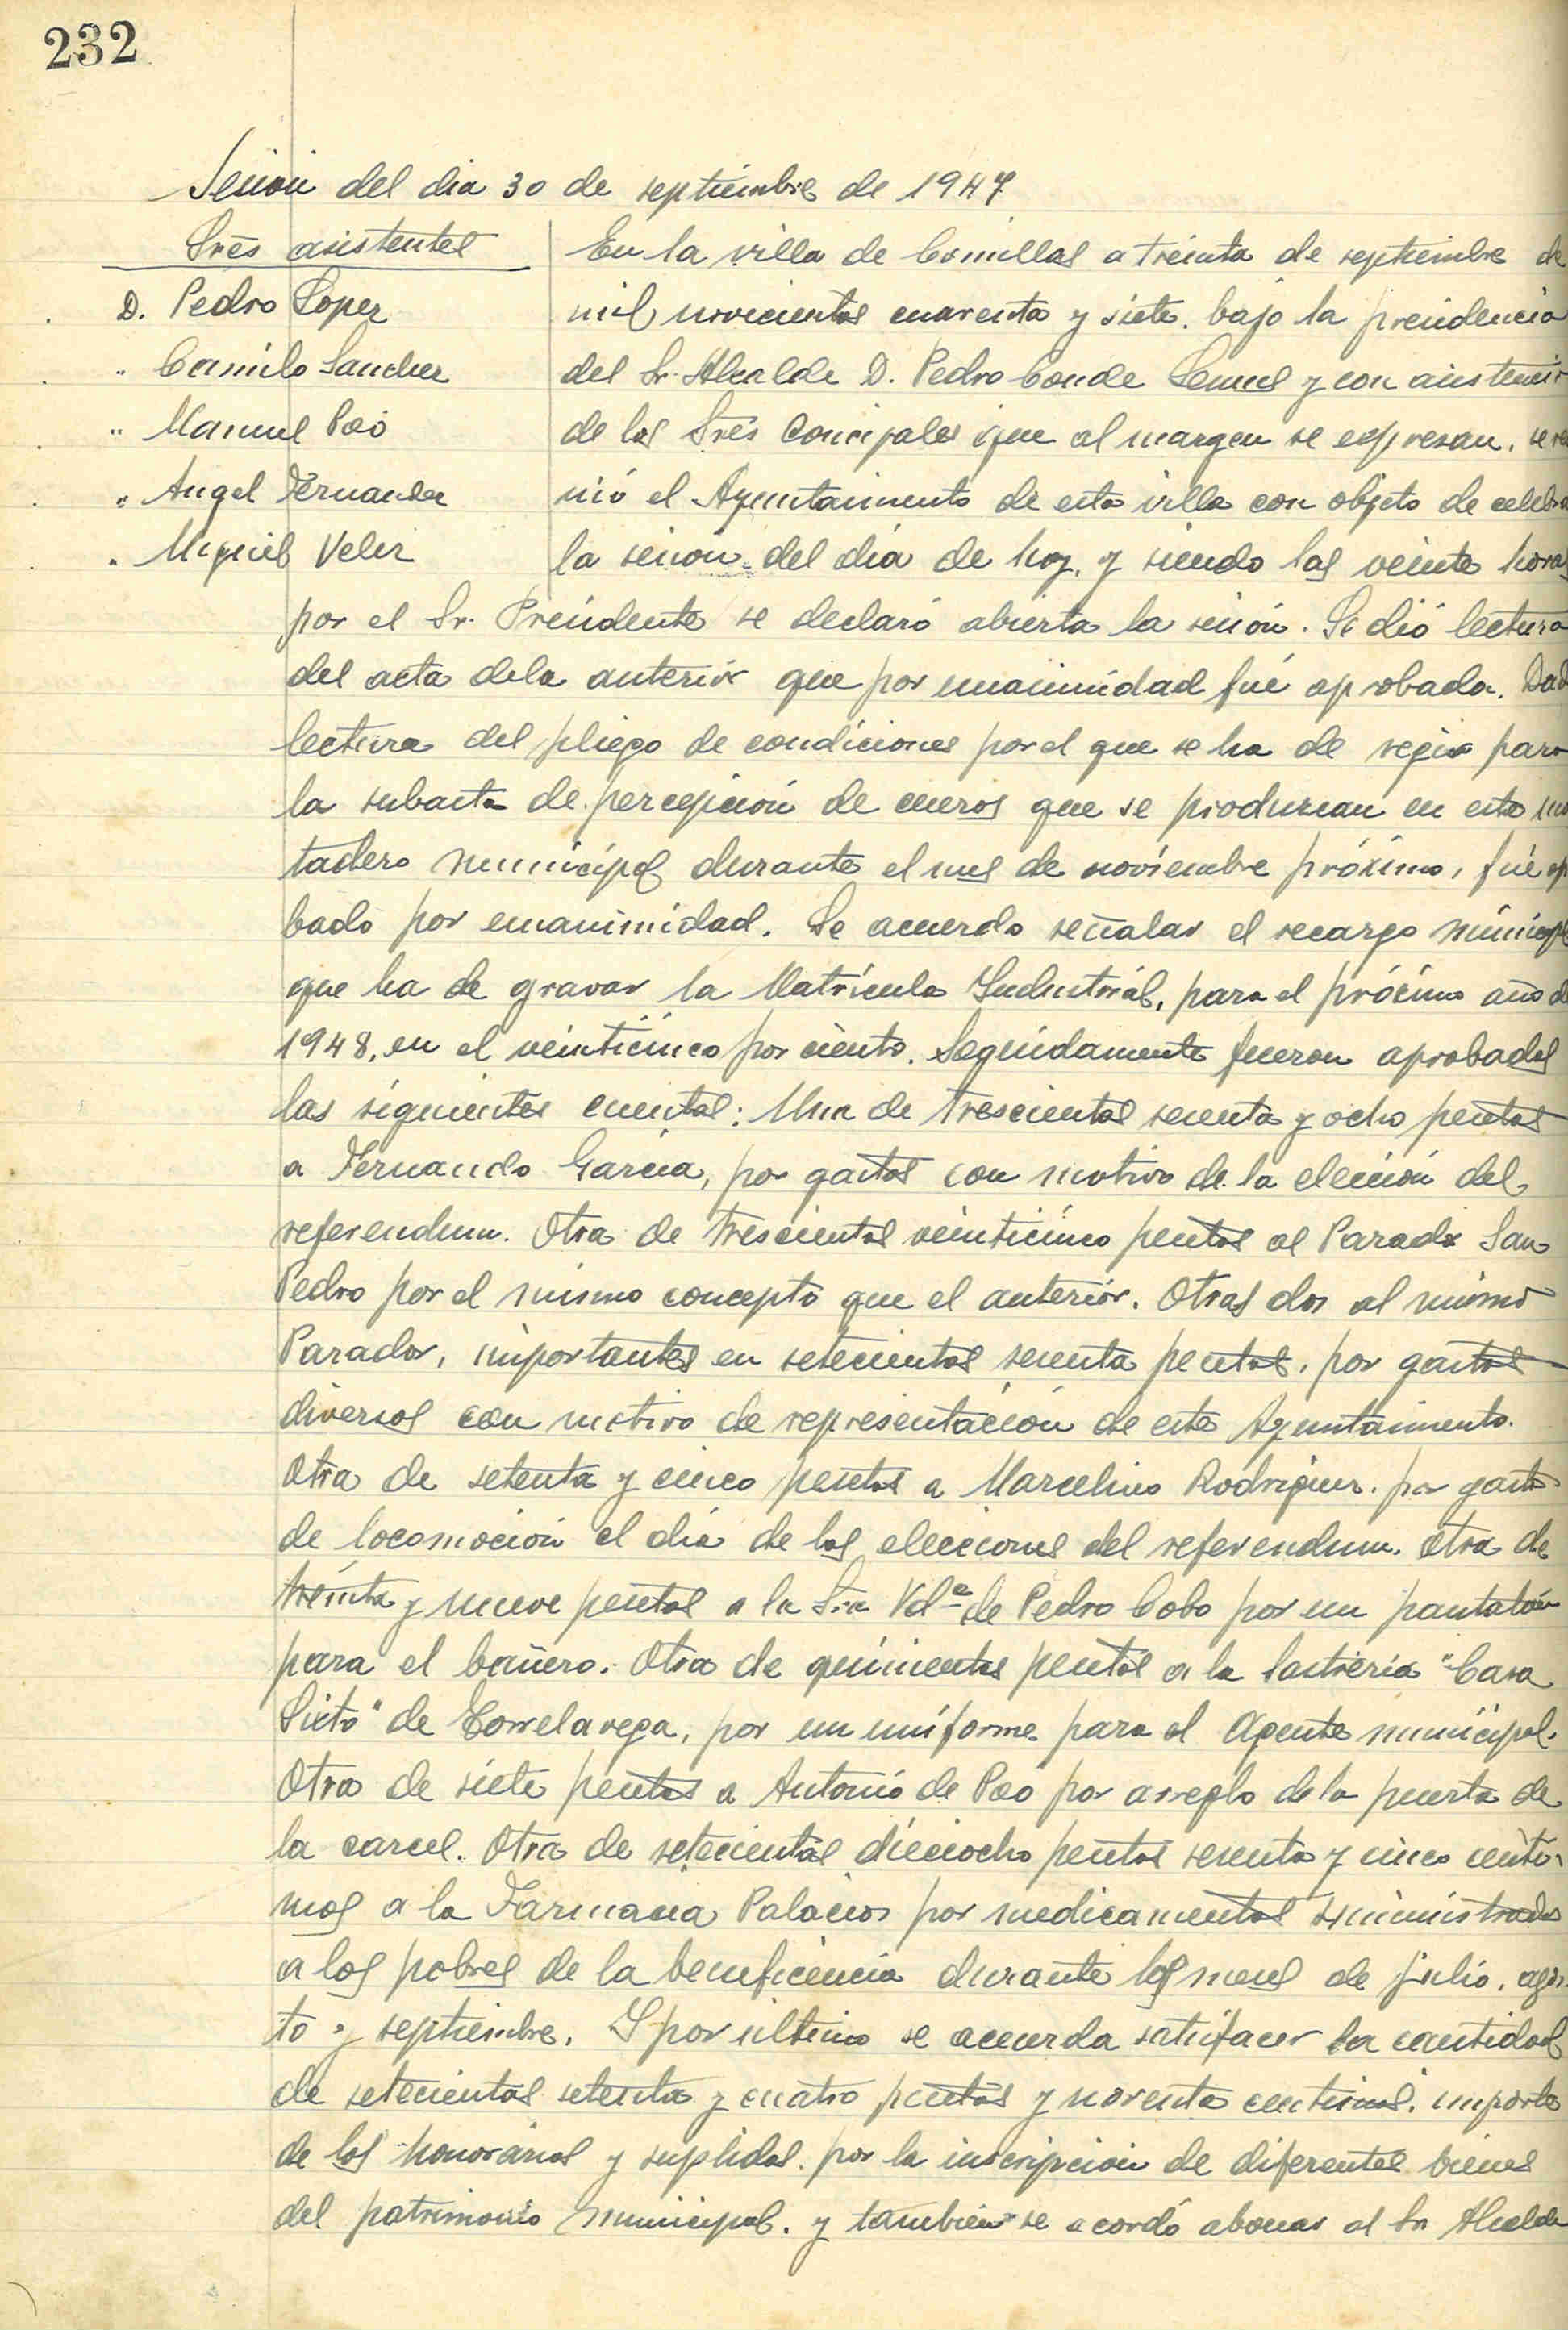 232
Sesión del dia 30 de septiembre de 1947
Sres asistentes
D. Pedro Lopez
" Camilo Sanchez
" Manuel Poó
" Angel Fernandez
" Miguel Velez
En la villa de Comillas a treinta de septiembre de
mil novecientos cuarenta y siete, bajo la presidencia
del Sr. Alcalde D. Pedro Conde y con asistencia
de los Sres Concejales que al margen se expresan, se re
nió el Ayuntamiento de esta villa con objeto de celebra
la sesión del día de hoy, y siendo las veinte horas
por el Sr. Presidente se declaró abierta la sesión. Se dió lectura
del acta dela anterior que por unanimidad fué aprobada. Dad
lectura del pliego de condiciones por el que se ha de regir para
la subasta de percepción de cueros que se produzcan en este ma
tadero municipal durante el mes de noviembre próximo, fué ap
bado por unanimidad. Se acuerdo señalar el recargo municipal
que ha de gravar la Matrícula Industrial, para el próximo año de
1948, en el veinticinco por ciento. Seguidamente fueron aprobadas
las siguientes cuentas: Una de trescientas sesenta y ocho pesetas
a Fernando García, por gastos con motivo de la elección del
referendum. Otra de trescientas veinticinco pesetas al Parador San
Pedro por el mismo concepto que el anterior. Otras dos al mismo
Parador, importantes en setecientas sesenta pesetas, por gastos
diversos con motivo de representación de este Ayuntamiento.
Otra de setenta y cinco pesetas a Marcelino Rodriguez, por gasto
de locomoción el día de las elecciones del referendum. Otra de
treinta y nueve pesetas a la Sra Vdª de Pedro Cobo por un pantalón
para el bañero. Otra de quinientas pesetas a la Sastrería "Casa
Sixto" de Torrelavega, por un uniforme para el Agente municipal.
Otra de siete pesetas a Antonio de Poó por arreglo de la puerta de
la carcel. Otra de setecientas dieciocho pesetas sesenta y cinco centi-
mos a la Farmacia Palacios por medicamentos suministrados
a los pobres de la beneficencia durante los meses de julio, agos-
to y septiembre. Y por ultimo se acuerda satisfacer la cantidad
de setecientas setenta y cuatro pesetas y noventa centimos, importe
de los honorarios y suplidos, por la inscripción de diferentes bienes
del patrimonio municipal, y también se acordó abonar al Sr Alcalde